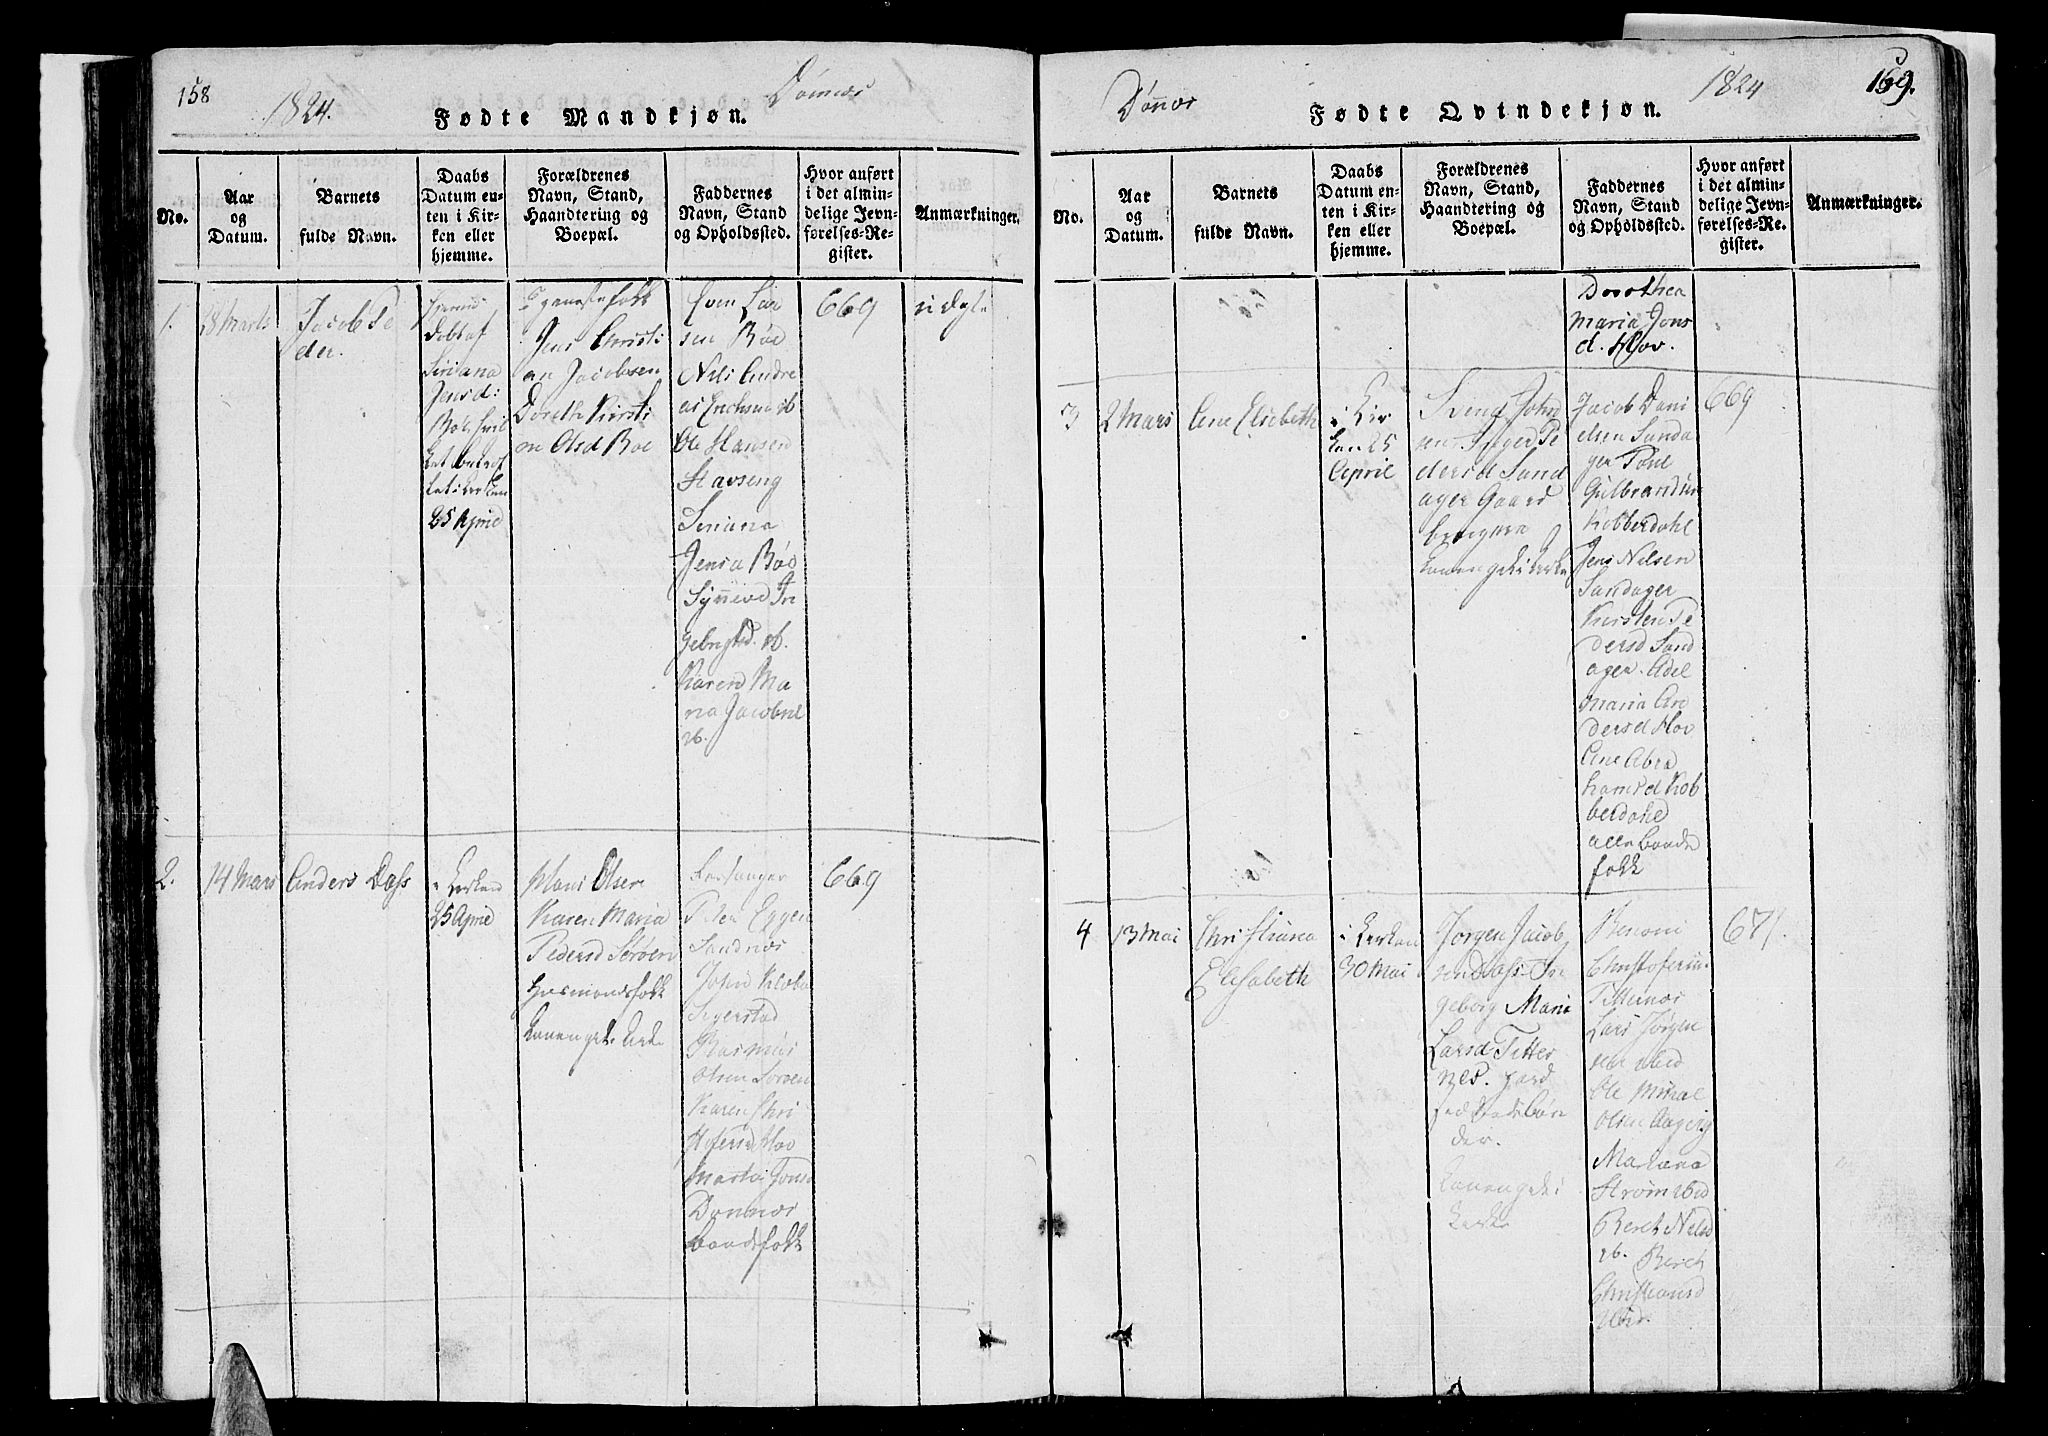 158
1824.
Dönnes
Fødte Mandkjøn.
No.
Aar
og
Datum.
Barnets
fulde Navn.
Daabs
Datum en-
ten i Kir-
ken eller
hjemme.
Forældrenes
Navn, Stand,
Haandtering og
Boepæl.
Faddernes
Navn, Stand
og Opholdssted.
Hvor anført
i det almin-
delige Jevn-
førelses-Re-
gister.
Anmærkninger.
1.
28 Marts
Jacob Pe
der.
döbt af
Siriana
Jensd:
25 April
Jens Christi
an Jacobsen
Dorethe Kirsti
ne Olsd Böe
Sven Lar
sen Böe
Nils Andre
as Erichsen ib
Ole Hansen
Stavseng
Siriana
Jensd Böe
Synneve In
gebrigtsd. ib.
Karen Ma
ria Jacobsd
ib.
669
uægte
2.
14 Mars
Anders Dass
i Kirken
25 April
Hans Olsen
Karen Maria
Pedersd Sörøen
Huusmandsfolk
Peder Eggen
Sandnæs
John Klobe
Rasmus
Olsen Sörøen
Karen Chri
stofersd Hov
Martha Jonsd
Dönnes
bondefolk
669
Dönnes
1824
159.
Fødte Qvindekjøn.
No.
Aar
og
Datum.
Barnets
fulde Navn.
Daabs
Datum en-
ten i Kir-
ken eller
hjemme.
Forældrenes
Navn, Stand,
Haandtering og
Boepæl.
Faddernes
Navn, Stand
og Opholdssted.
Hvor anført
i det almin-
delige Jevn-
førelses-Re-
gister.
Anmærkninger.
Dorothea
Maria Jons
d. Hov.
3
2 Mars
Ane Elisebeth
i Kir
ken 25
April
Svend John
sen Inger Pe
dersd Sand
ager Gaard
Jacob Dani
elsen Sanda
ger Povl
Gulbrandsen
Kobberdahl
Jens Nilsen
Sandager
Kirsten Pe
dersd Sand
ager. Adel
Maria An
dersd Hov
Ane Abra
hamsd Kob
berdahl
alle bonde
folk
669
4
13 Mai
Christiana
Elisabeth
i Kirken
30 Mai
Jørgen Jacob
sen Dass In
geborg Maria
Larsd Titter
nes.
Benoni
Christofersen
Titternes
Lars Jørgen
sen ibid
Ole Michael
Olsen
Mariana
Strøm ibid
Beret Nilsd
ib. Beret
Christiansd
ibid.
671.